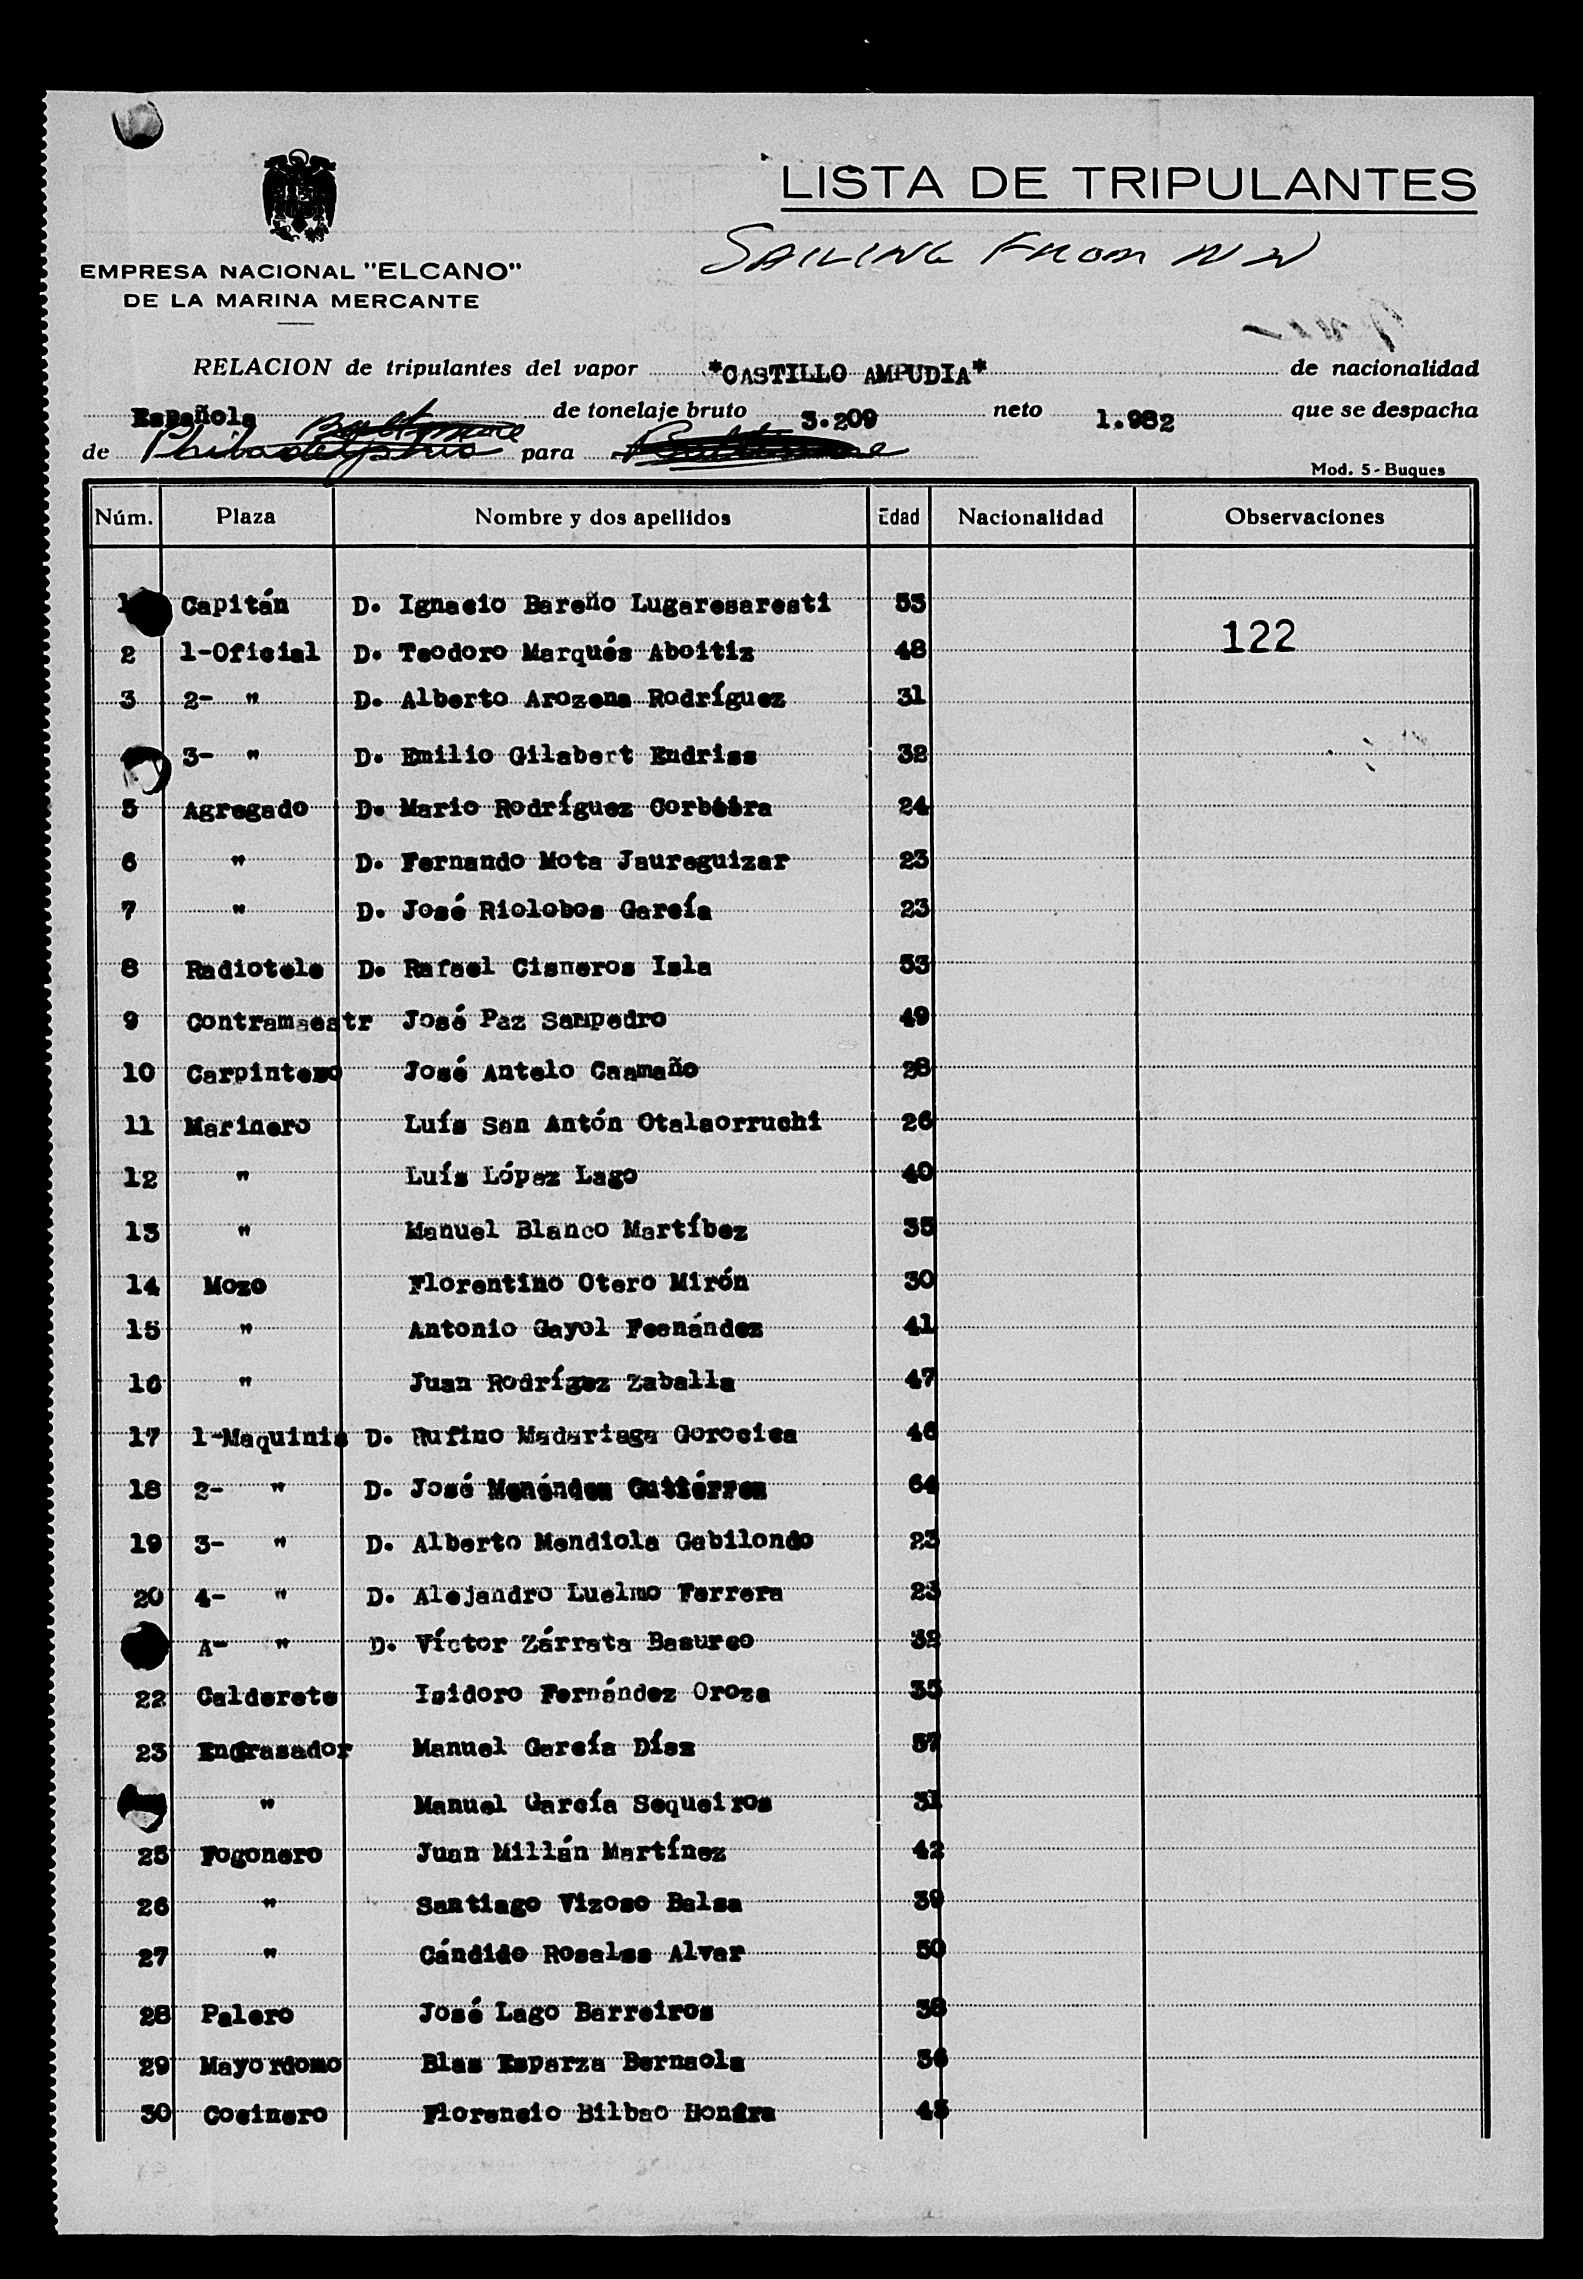 LISTA DE TRIPULANTES
SAILING FROM
EMPRESA NACIONAL "ELCANO"
DE LA MARINA MERCANTE
RELACION de tripulantes del vapor *CASTILLO AMPUDIA* de nacionalidad
Española de tonelaje bruto 3.209 neto 1.982 que se despacha
Baltimore
de Philadelphia para Baltimore
Mod. 5 - Buques
Núm. Plaza Nombre y dos apellidos Edad Nacionalidad Observaciones
1 Capitán D. Ignacio Bareño Lugaresaresti 53
122
2 1-Oficial D. Teodoro Marqués Aboitiz 48
3 2- " D. Alberto Arozena Rodríguez 31
3- " D. Emilio Gilabert Endriss 32
5 Agregado D. Mario Rodríguez 24
6 " D. Fernando Mota Jaureguizar 23
7 " D. José Riolobos García 23
8 Radiotele D. Rafael Cisneros Isla 53
9 Contramaestr José Paz Sampedro 49
10 Carpintero José Antelo Caamaño 28
11 Marinero Luís San Antón Otalaorruchi 26
12 " Luís López Lago 40
13 " Manuel Blanco Martíbez 35
14 Mozo Florentino Otero Mirón 30
15 " Antonio Gayol Feenández 41
16 " Juan Rodrígez Zaballa 47
17 1-Maquinis D. Rufino Madariaga Gorocica 46
18 2- " D. José Menéndez Gutiérrez 64
19 3- " D. Alberto Mendiola Gabilondo 23
20 4- " D. Alejandro Luelmo Ferrera 23
A- " D. Víctor Zárrata Basurco 32
22 Calderete Isidoro Fernández Oroza 35
23 Engrasador Manuel García Díaz 57
" Manuel García Sequeiros 31
25 Fogonero Juan Millán Martínez 42
26 " Santiago Vizoso Balsa 39
27 " Cándido Rosales Alvar 50
28 Palero José Lago Barreiros 38
29 Mayordomo Blas Esparza Bernaola 36
30 Cocinero Florencio Bilbao 45